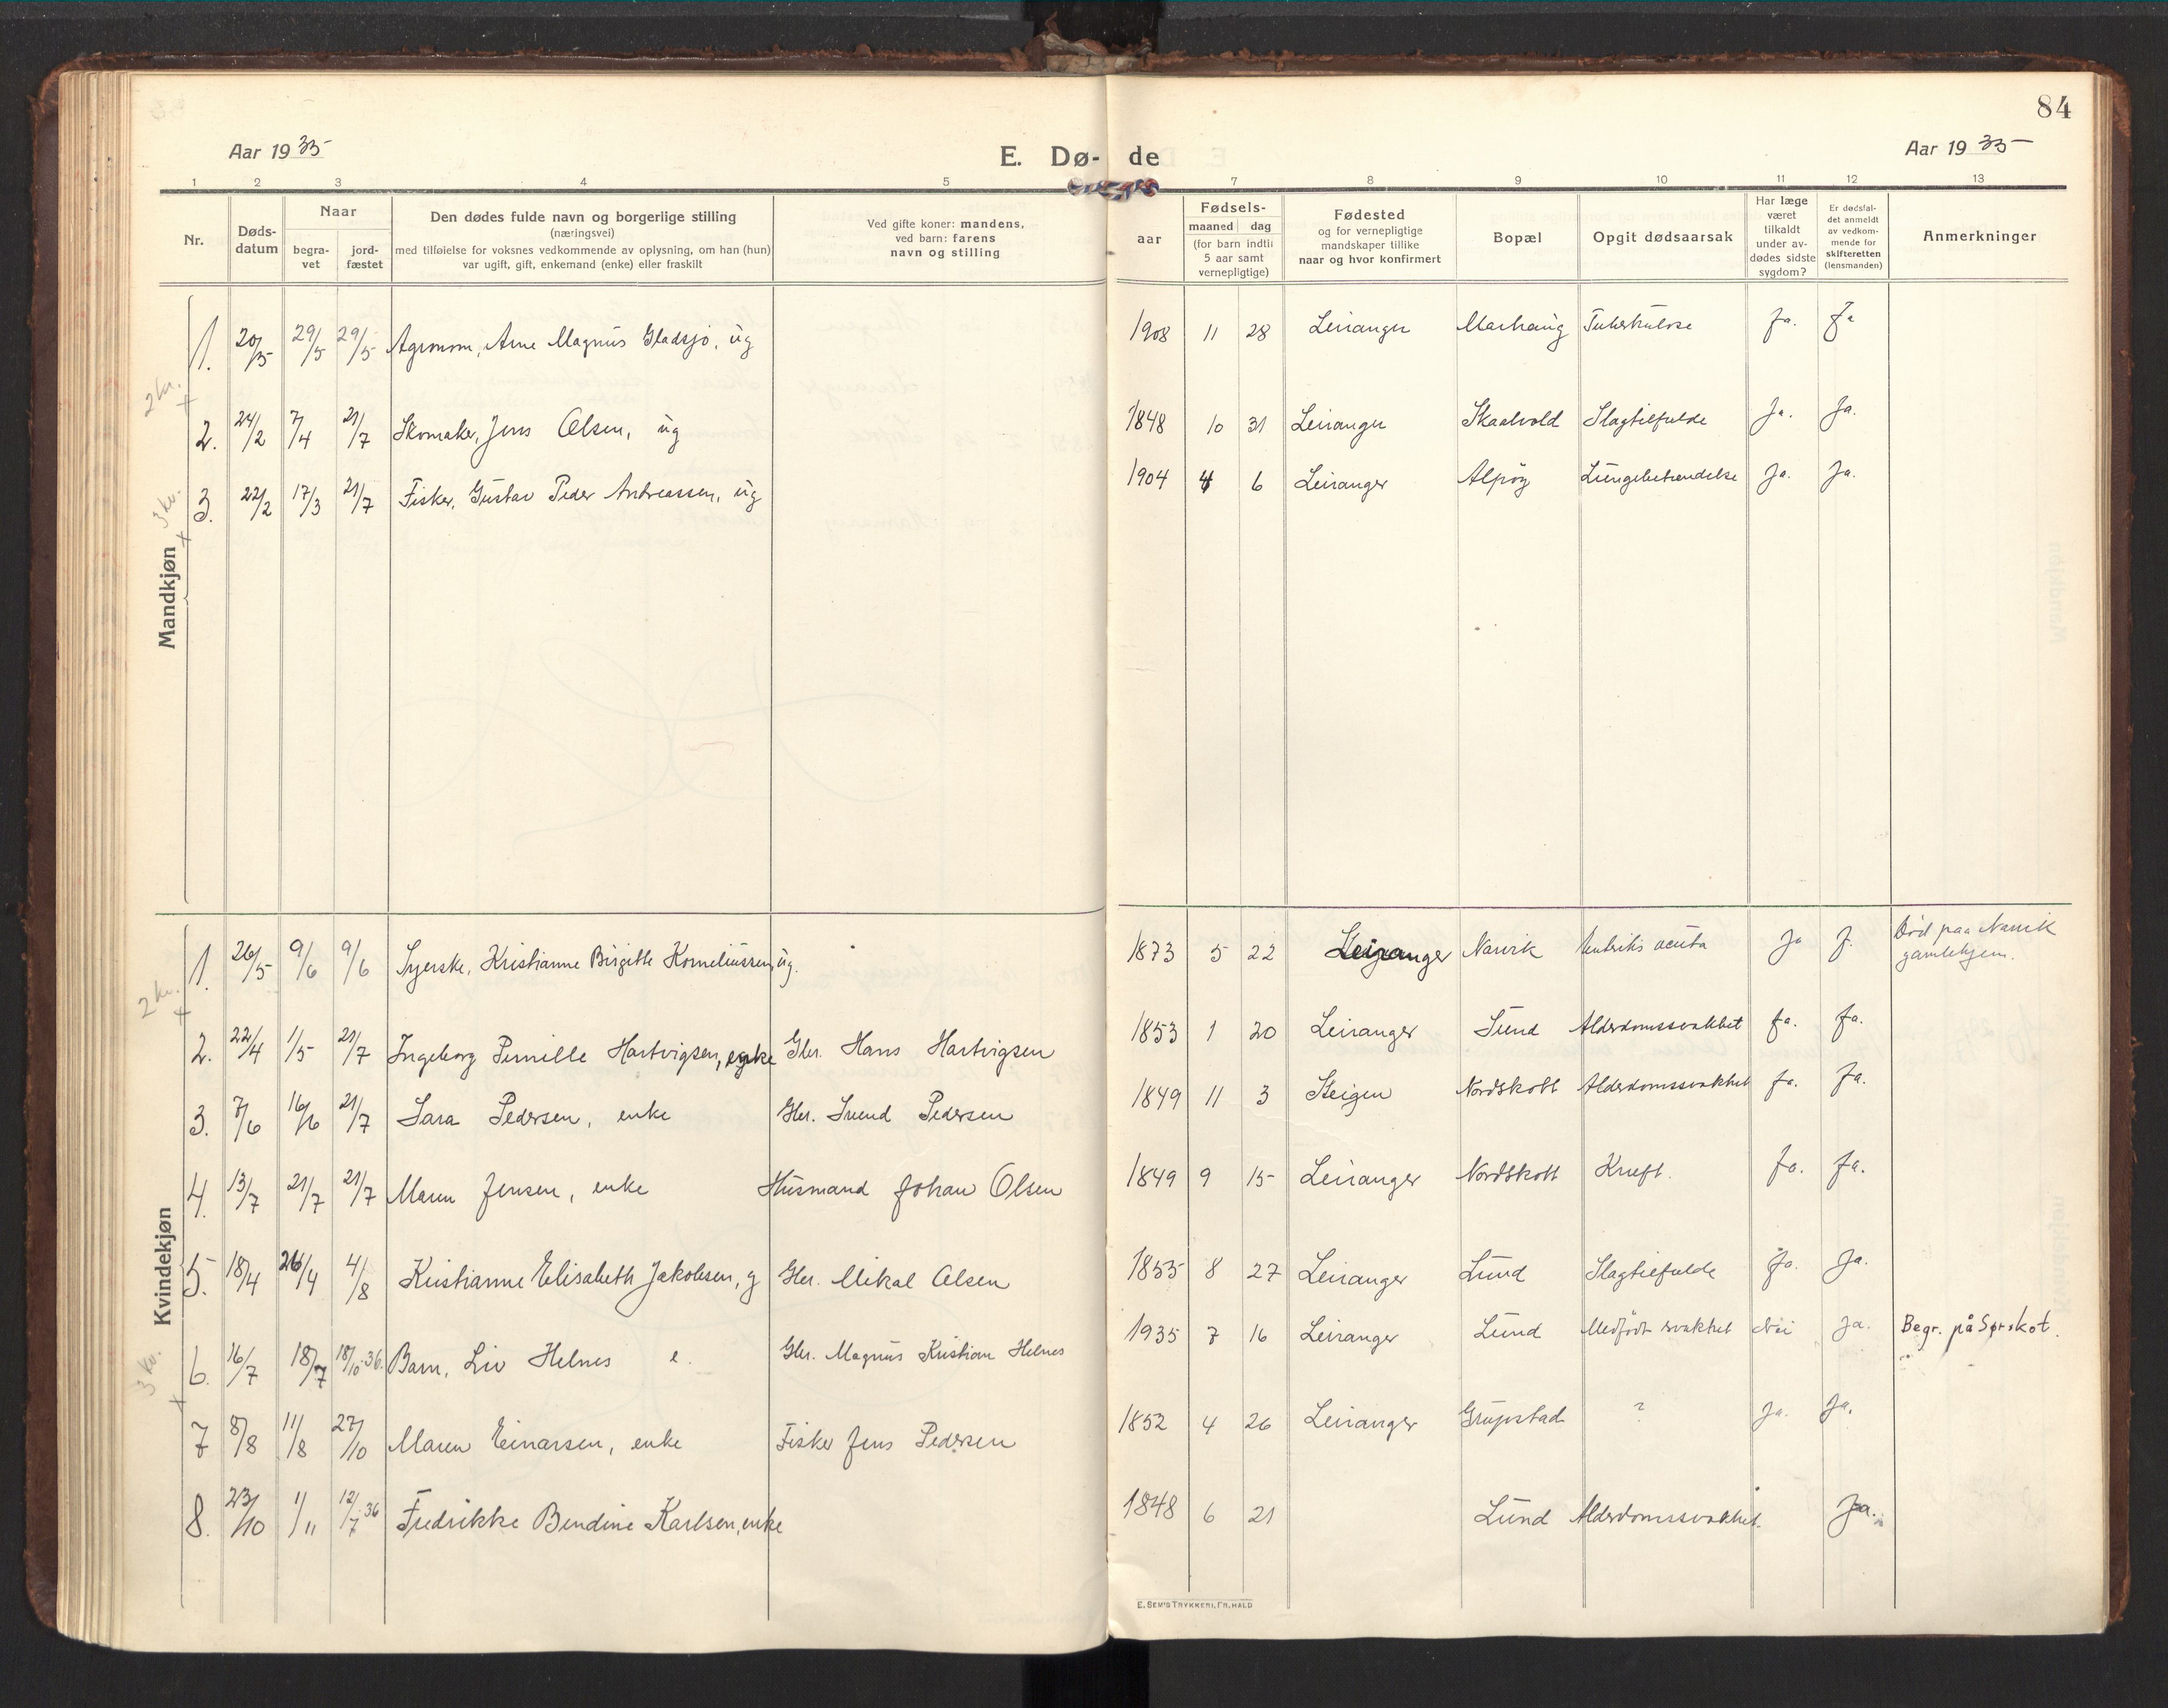 84
Aar 1935
E. Dø- de
Aar 1935
1 2 3 4 5 7 8 9 10 11 12 13
Nr.
Døds-
datum
Naar
begra-
vet
jord-
fæstet
Den dødes fulde navn og borgerlige stilling
(næringsvei)
med tilføielse for voksnes vedkommende av oplysning, om han (hun)
var ugift, gift, enkemand (enke) eller fraskilt
Ved gifte koner: mandens,
ved barn: farens
navn og stilling
Fødsels-
aar
maaned dag
(for barn indtil
5 aar samt
vernepligtige)
Fødested
og for vernepligtige
mandskaper tillike
naar og hvor konfirmert
Bopæl
Opgit dødsaarsak
Har læge
været
tilkaldt
under av-
dødes sidste
sygdom?
Er dødsfal-
det anmeldt
av vedkom-
mende for
skifteretten
(lensmanden)
Anmerkninger
Mandkjøn
1. 20/5 29/5 29/5 Agronom, Arne Magnus Gladsjø, ug 1908 11 28 Leiranger Marhaug Tuberkulose Ja. Ja
2 kr. +
2. 24/2 7/4 21/7 Skomaker, Jens Olsen, ug 1848 10 31 Leiranger Skaalvold Slagtilfelde Ja. Ja.
3 kr. +
3. 22/2 17/3 21/7 Fisker, Gustav Peder Andreassen, ug 1904 4 6 Leiranger Alpøy Lungebetændelse Ja. Ja.
Kvindekjøn
1. 26/5 9/6 9/6 Syerske, Kristianne Birgitte Korneliussen, ug. 1873 5 22 Leiranger Narvik acuta Ja J. Død paa Narvik
gamlehjem.
2 kr. +
2. 22/4 1/5 21/7 Ingeborg Pernille Hartvigsen, enke Gbr. Hans Hartvigsen 1853 1 20 Leiranger Lund Alderdomssvakhet Ja. Ja.
3. 7/6 16/6 21/7 Sara Pedersen, enke Gbr. Svend Pedersen 1849 11 3 Steigen Nordskott Alderdomssvakhet Ja. Ja.
4. 13/7 21/7 21/7 Maren Jensen, enke Husmand Johan Olsen 1849 9 15 Leiranger Nordskott Kreft. Ja. Ja.
5. 18/4 26/4 4/8 Kristianne Elisabeth Jakobsen, g Gbr. Mikal Olsen 1855 8 27 Leiranger Lund Slagtilfelde Ja. Ja.
3 kr. +
6. 16/7 18/7 18/10 36. Barn, Liv Helnes e. Gbr. Magnus Kristian Helnes 1935 7 16 Leiranger Lund Medfødt svakhet Nei Ja. Begr. på Sørskot.
7 8/8 11/8 27/10 Maren Einarsen, enke Fisker Jens Pedersen 1852 4 26 Leiranger Grøpstad ? Ja. Ja.
8. 23/10 1/11 12/7 36 Fredrikke Bendine Karlsen, enke 1848 6 21 Lund Alderdomssvakhet. Ja.
E. SEM'S TRYKKERI, FR. HALD